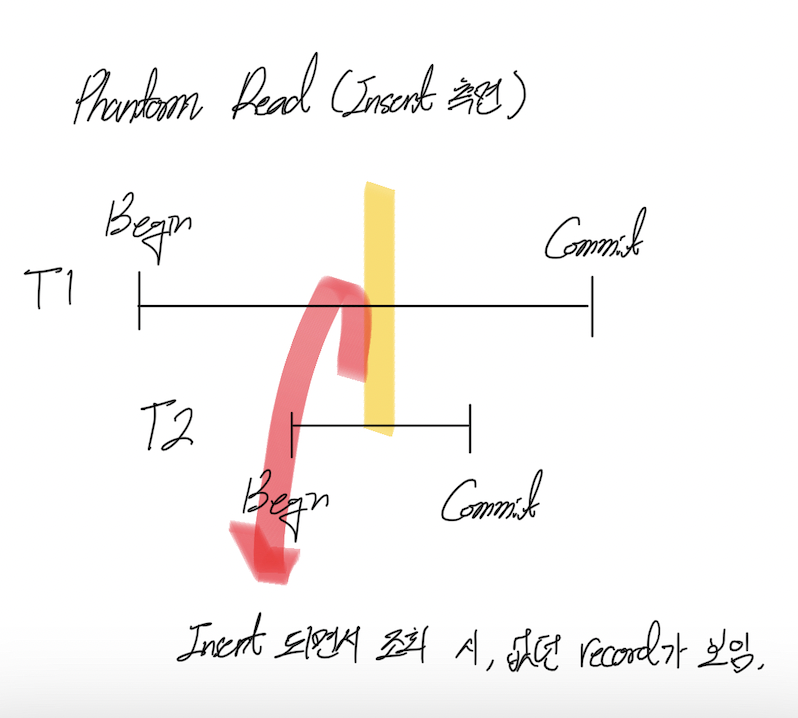 Phantom Read (Insert 측면)
Begin
Commit
T1
T2
Begin
Commit
Insert 되면서 조회 시, 없던 record가 보임.